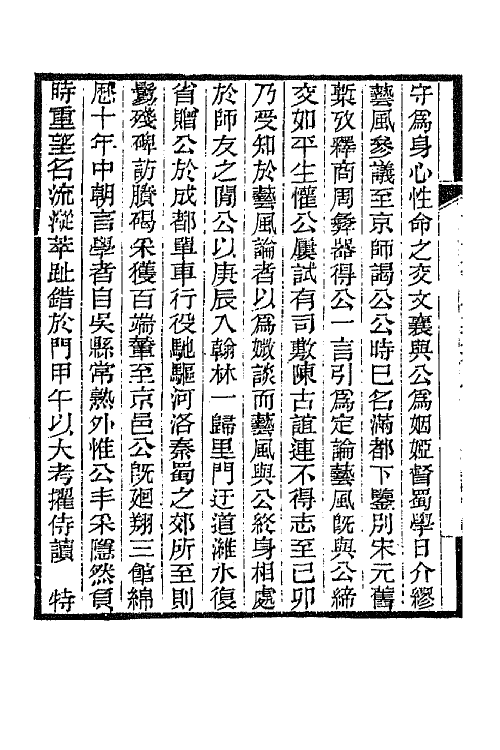 守爲身心性命之交文襄與公爲姻婭督蜀學日介繆
藝風參議至京師謁公公時已名滿都下鑒別宋元舊
槧攷釋商周彝器得公一言引爲定論藝風旣與公締
交如平生懽公屢試有司敷陳古誼連不得志至己卯
乃受知於藝風論者以爲媺談而藝風與公終身相處
於師友之閒公以庚辰入翰林一歸里門迂道濰水復
省贈公於成都單車行役馳驅河洛秦蜀之郊所至則
鬻殘碑訪賸碣采獲百端輦至京邑公旣廻翔三館綿
歷十年中朝言學者自吳縣常熟外惟公丰采隱然負
時重望名流漎萃趾錯於門甲午以大考擢侍讀　特